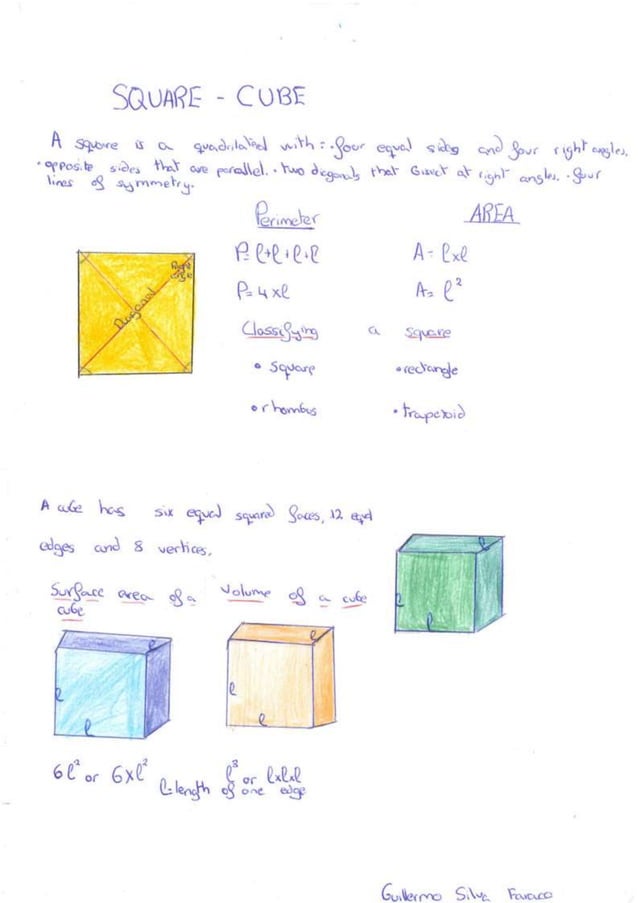 SQUARE - CUBE
A square is a quadrilateral with: · four equal sides and four right angles.
· opposite sides that are parallel. · two diagonals that bisect at right angles. · four
lines of symmetry.
Perimeter
AREA
P= l+l+l+l
A= lxl
P= 4xl
A= l²
Right angle
Diagonal
Classifying a square
• square
• rectangle
• rhombus
• trapezoid
A cube has six equal squared faces, 12 equal
edges and 8 vertices.
Surface area of a
cube
Volume of a cube
l
l
l
l
l
l
l
l
l
6l² or 6xl²
l³ or lxlxl
l=length of one edge
Guillermo Silva